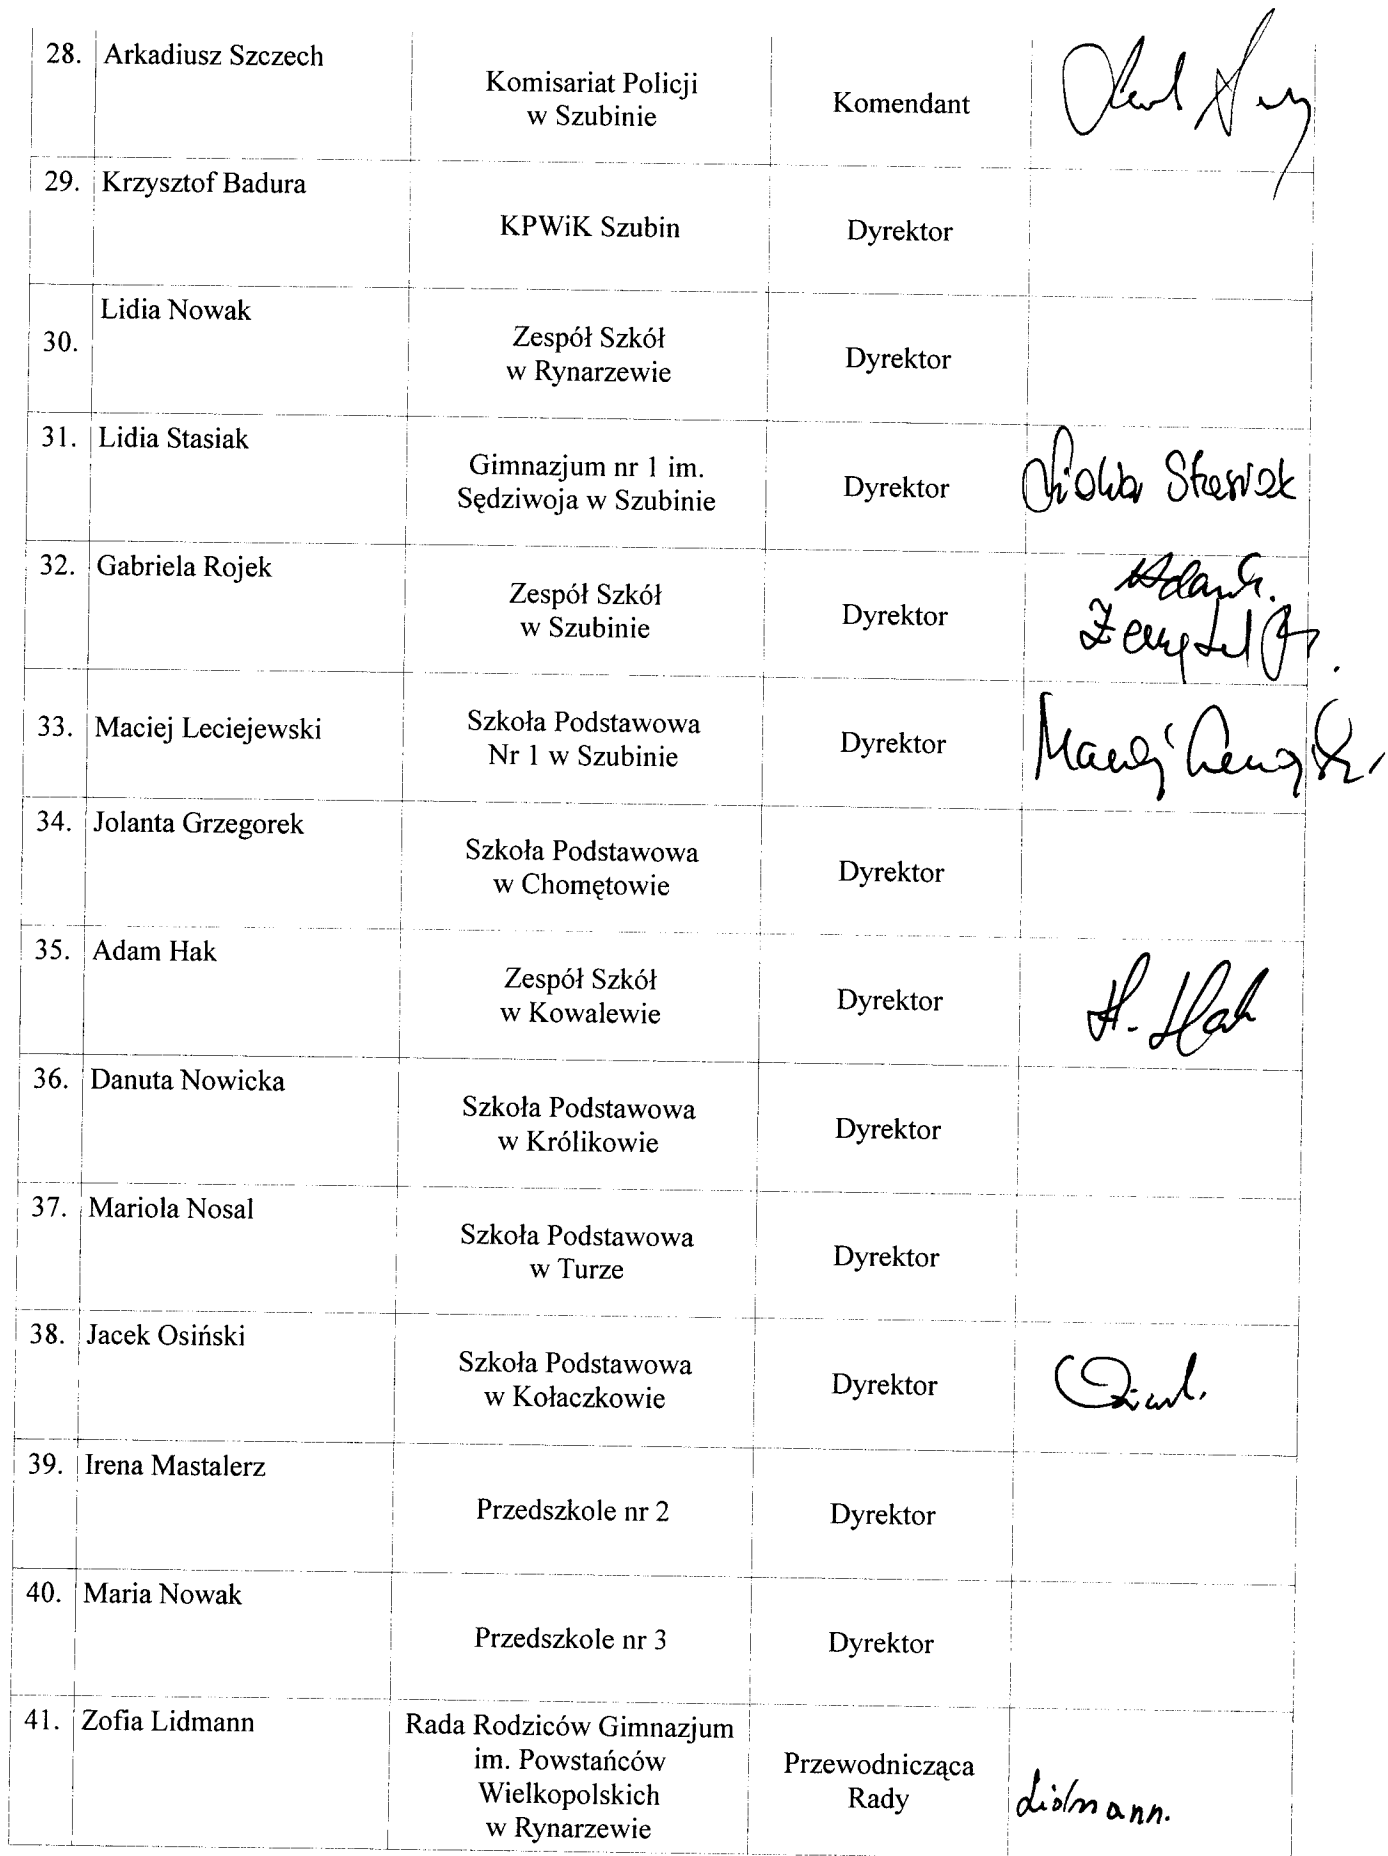 28. Arkadiusz Szczech
Komisariat Policji
w Szubinie
Komendant
29. Krzysztof Badura
KPWiK Szubin
Dyrektor
30. Lidia Nowak
Zespół Szkół
w Rynarzewie
Dyrektor
31. Lidia Stasiak
Gimnazjum nr 1 im.
Sędziwoja w Szubinie
Dyrektor
Lidia Stasiak
32. Gabriela Rojek
Zespół Szkół
w Szubinie
Dyrektor
33. Maciej Leciejewski
Szkoła Podstawowa
Nr 1 w Szubinie
Dyrektor
Maciej
34. Jolanta Grzegorek
Szkoła Podstawowa
w Chomętowie
Dyrektor
35. Adam Hak
Zespół Szkół
w Kowalewie
Dyrektor
A. Hak
36. Danuta Nowicka
Szkoła Podstawowa
w Królikowie
Dyrektor
37. Mariola Nosal
Szkoła Podstawowa
w Turze
Dyrektor
38. Jacek Osiński
Szkoła Podstawowa
w Kołaczkowie
Dyrektor
39. Irena Mastalerz
Przedszkole nr 2
Dyrektor
40. Maria Nowak
Przedszkole nr 3
Dyrektor
41. Zofia Lidmann
Rada Rodziców Gimnazjum
im. Powstańców
Wielkopolskich
w Rynarzewie
Przewodnicząca
Rady
Lidmann.